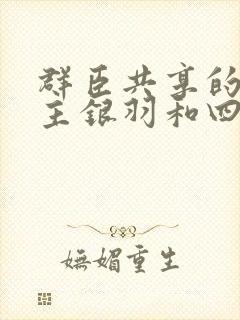 群臣共享的
主银羽和四
妩媚重生